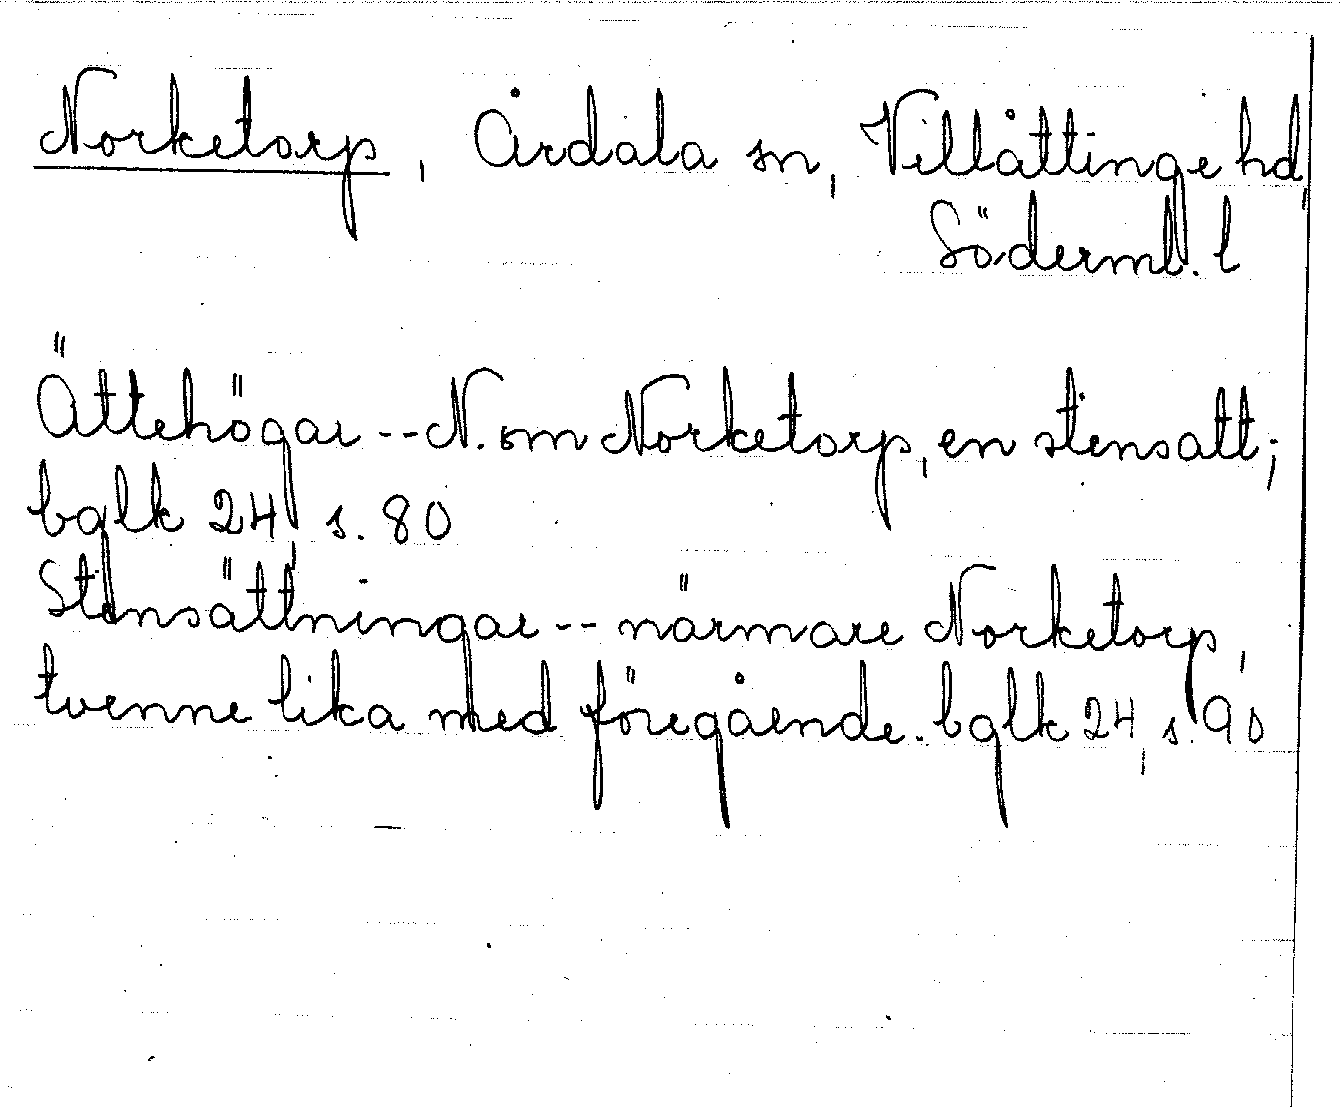 Norketorp, Årdala sn, Villåttinge hd,
Söderml. l
Ättehögar -- N. om Norketorp, en stensatt;
bglk 24 s. 80
Stensättningar -- närmare Norketorp,
tvenne lika med föregående. bglk 24, s. 90